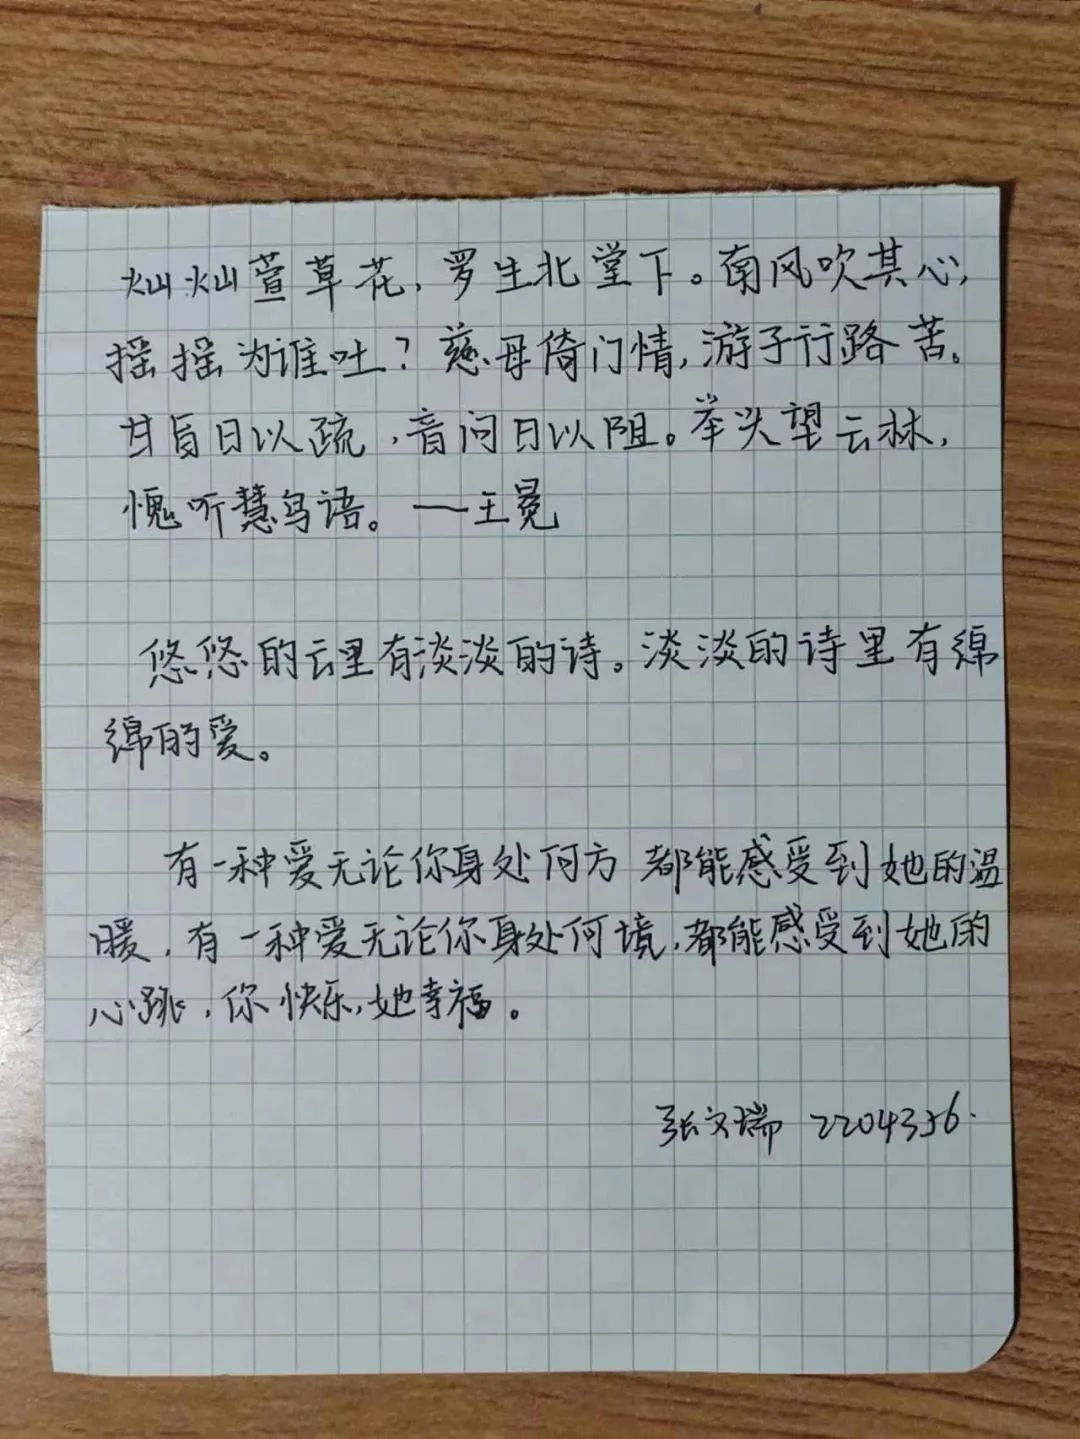 灿灿萱草花，罗生北堂下。南风吹其心，
摇摇为谁吐？慈母倚门情，游子行路苦。
甘旨日以疏，音问日以阻。举头望云林，
愧听慧鸟语。——王冕
悠悠的云里有淡淡的诗。淡淡的诗里有绵
绵的爱。
有一种爱无论你身处何方 都能感受到她的温
暖，有一种爱无论你身处何境，都能感受到她的
心跳，你快乐，她幸福。
张文瑞 2204356.